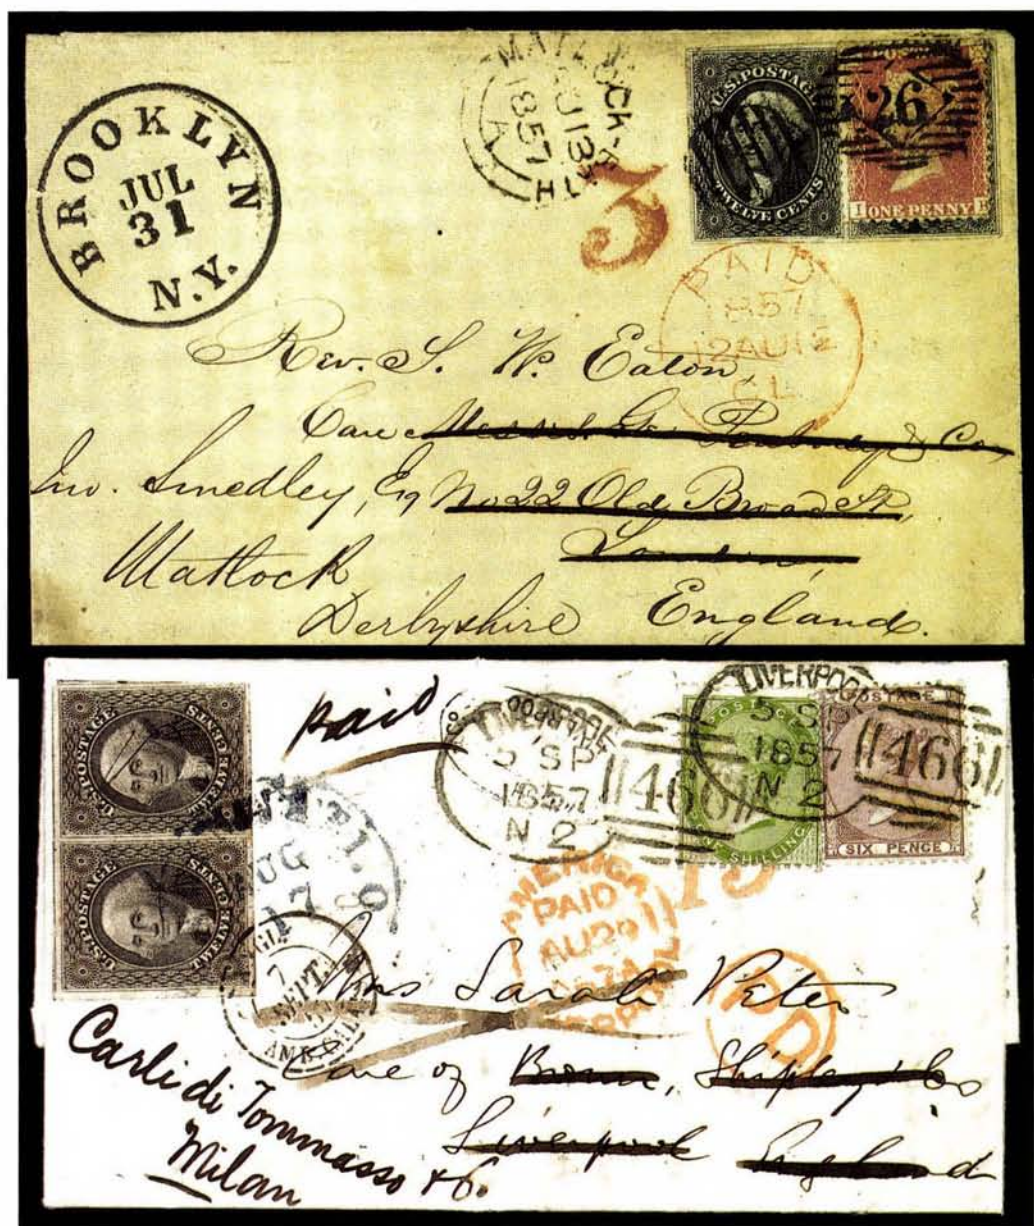 BROOKLYN
JUL
31
N.Y.
AU 13
1857
A
U.S. POSTAGE
TWELVE CENTS
26
I ONE PENNY
3
PAID
1857
12AU12
Rev. S. W. Eaton,
Care Messrs. Geo. Peabody & Co,
Jno. Smedley, Esq No 22 Old Broad St,
London,
Matlock
Derbyshire England.
U.S. POSTAGE
TWELVE CENTS
U.S. POSTAGE
TWELVE CENTS
paid
LIVERPOOL
5 SP
1857
N 2
466
POSTAGE
ONE SHILLING
LIVERPOOL
5 SP
1857
N 2
466
POSTAGE
SIX PENCE
AUG
17
AMERICA
PAID
AU29
LIVERPOOL
PD
7
SEPT
Mrs Sarah Peter
Care of Brown, Shipley & Co
Liverpool England
Carli di Tommasso & Co.
Milan